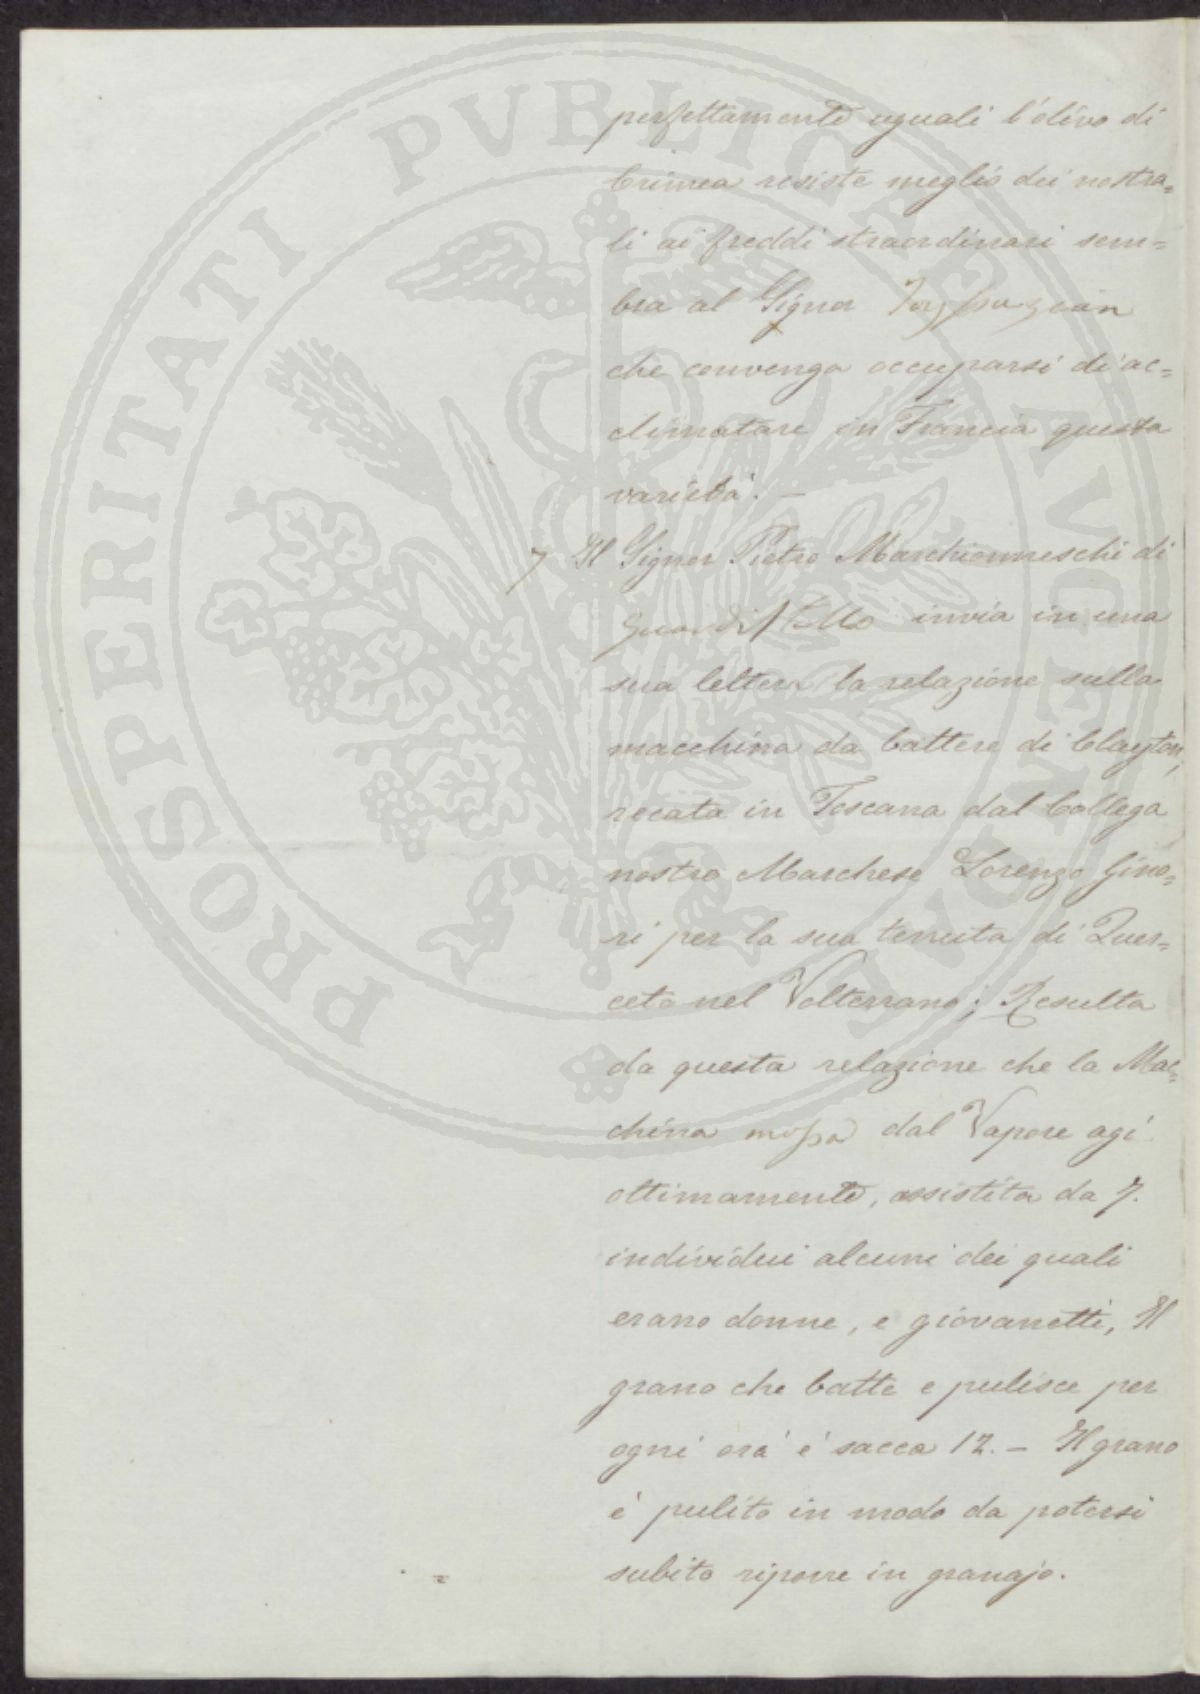 perfettamente uguali l'olivo di
Crimea resiste meglio dei nostra=
li ai freddi straordinari sem=
bra al Signor
che convenga occuparsi di ac=
climatare in Francia questa
varietà. —
7 Il Signor Pietro Marchionneschi di
Guardistallo invia in una
sua lettera la relazione sulla
macchina da battere di Clayton,
recata in Toscana dal Collega
nostro Marchese Lorenzo Gino=
ri per la sua tenuta di Quer=
ceto nel Volterrano; Resulta
da questa relazione che la Mac=
china mossa dal Vapore agì
ottimamente, assistita da 7.
individui alcuni dei quali
erano donne, e giovanetti, Il
grano che batte e pulisce per
ogni ora è sacca 12. — Il grano
è pulito in modo da potersi
subito riporre in granajo.
PROSPERITATI PVBLICAE AVGENDAE